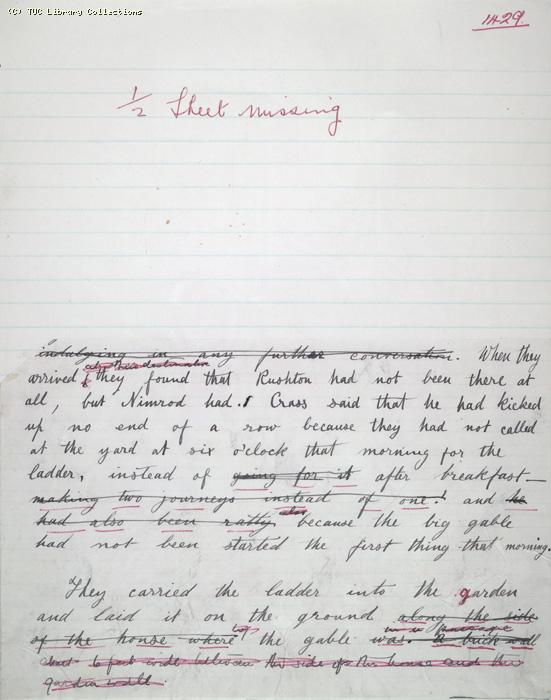 (C) TUC Library Collections
1429.
1/2 Sheet missing
indulging in any further conversation. When they
at their destination
arrived they found that Rushton had not been there at
all, but Nimrod had. Crass said that he had kicked
up no end of a row because they had not called
at the yard at six o'clock that morning for the
ladder, instead of going for it after breakfast—
making two journeys instead of one! and he
had also been ratty also because the big gable
had not been started the first thing that morning.
They carried the ladder into the garden
and laid it on the ground along the side
of the house where the gable was. A brick wall
about 6 feet wide between the side of the house and the
garden wall.